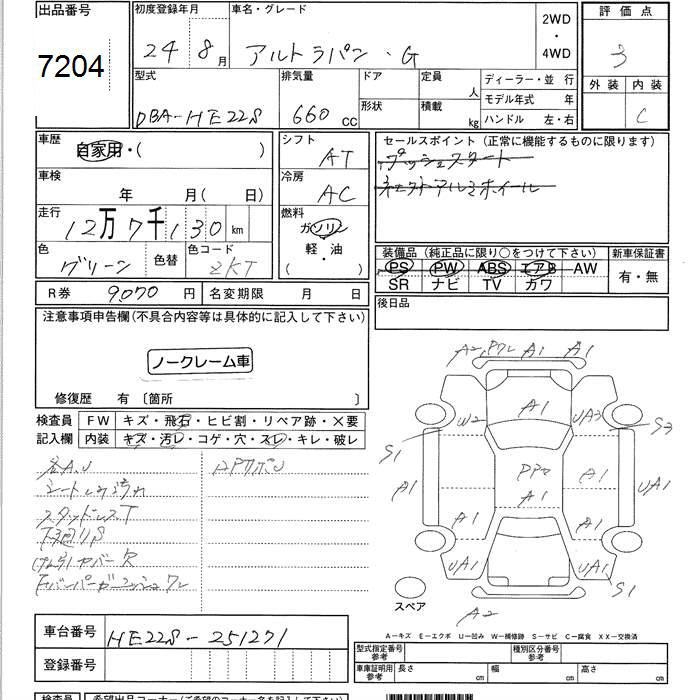 出品番号 初度登録年月 車名・グレード 評価点
7204 24 8月 アルトラパン・G 2WD・4WD 3
型式 排気量 ドア 定員 人 ディーラー・並行 外装 内装
DBA-HE22S 660cc 形状 積載 kg モデル年式 年 C
ハンドル 左・右
車歴 自家用・( ) シフト AT セールスポイント(正常に機能するものに限ります)
プッシュスタート
車検 年 月( 日) 冷房 AC
走行 12万7千130km 燃料 ガソリン
軽・油
( )
色 グリーン 色替 色コード ZKT 装備品(純正品に限り○をつけて下さい) 新車保証書
PS PW ABS エアB AW 有・無
SR ナビ TV カワ
R券 9,070円 名変期限 月 日 後日品
注意事項申告欄(不具合内容等は具体的に記入して下さい)
ノークレーム車
修復歴 有〔箇所 〕
検査員 FW キズ・飛石・ヒビ割・リペア跡・X要
記入欄 内装 キズ・汚レ・コゲ・穴・スレ・キレ・破レ
各A.U
スタッドレスT
A2, A1 A1
W2 A1 UA3 S3
S1 A1 A1 A1 UA1
A1 A1
UA1 UA1 S1
A2
スペア
A-キズ E-エクボ U-凹み W-補修跡 S-サビ C-腐食 XX-交換済
車台番号 HE22S-251271 型式指定番号 参考 種別区分番号 参考
登録番号 車庫証明用 参考 長さ cm 幅 cm 高さ cm